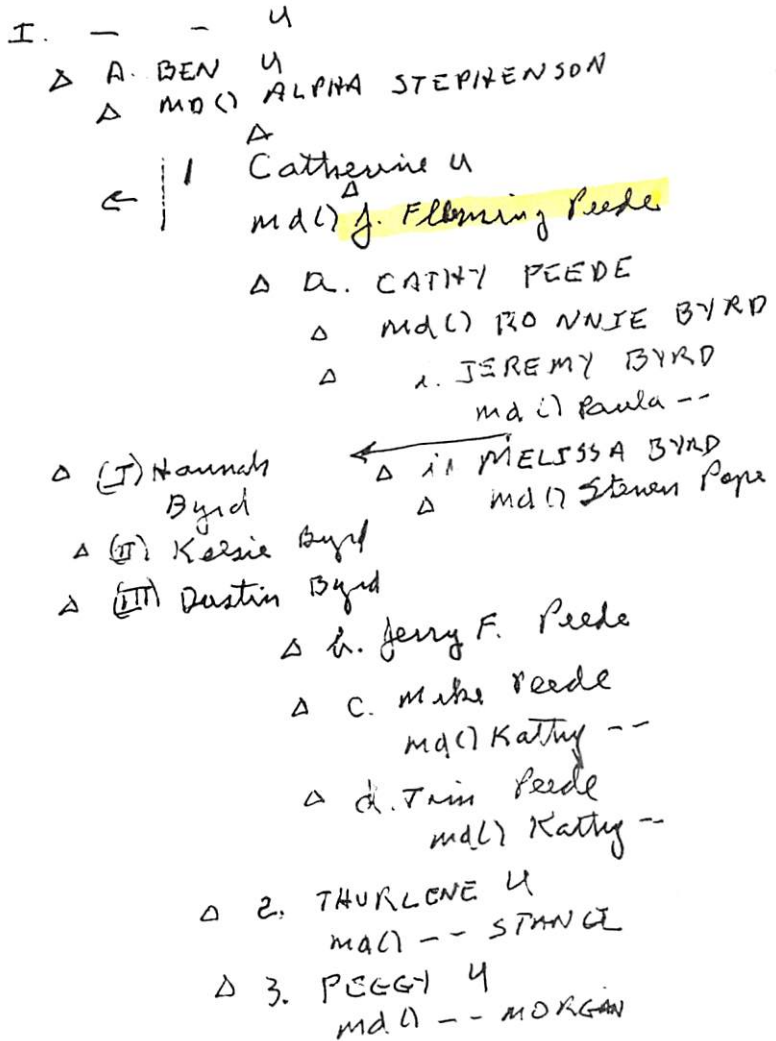 I. - - U
Δ A. BEN U
Δ MD() ALPHA STEPHENSON
Δ
1 Catherine U
Δ
md() J. Flemming Peede
Δ a. CATHY PEEDE
Δ md() RONNIE BYRD
Δ i. JEREMY BYRD
md() Paula --
Δ ii MELISSA BYRD
Δ md() Steven Pope
Δ (I) Hannah
Byrd
Δ (II) Kelsie Byrd
Δ (III) Dustin Byrd
Δ b. Jerry F. Peede
Δ c. Mike Peede
md() Kathy --
Δ d. Tim Peede
md() Kathy --
Δ 2. THURLENE U
md() -- 
Δ 3. PEGGY U
md() -- MORGAN